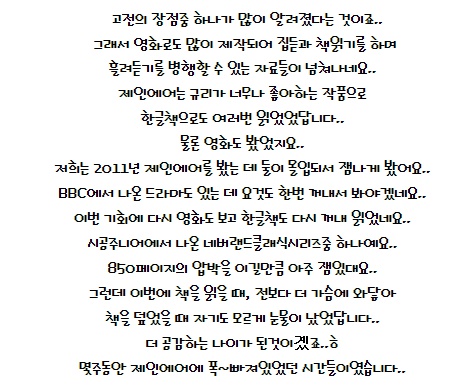 고전의 장점중 하나가 많이 알려졌다는 것이죠..
그래서 영화로도 많이 제작되어 집듣과 책읽기를 하며
흘려듣기를 병행할 수 있는 자료들이 넘쳐나네요..
제인에어는 규리가 너무나 좋아하는 작품으로
한글책으로도 여러번 읽었었답니다..
물론 영화도 봤었지요..
저희는 2011년 제인에어를 봤는 데 둘이 몰입되서 잼나게 봤어요..
BBC에서 나온 드라마도 있는 데 요것도 한번 꺼내서 봐야겠네요..
이번 기회에 다시 영화도 보고 한글책도 다시 꺼내 읽었네요..
시공주니어에서 나온 네버랜드클래식시리즈중 하나예요..
850페이지의 압박을 이길만큼 아주 잼있대요..
그런데 이번에 책을 읽을 때, 전보다 더 가슴에 와닿아
책을 덮었을 때 자기도 모르게 눈물이 났었답니다..
더 공감하는 나이가 된것이겠죠..ㅎ
몇주동안 제인에어에 푹~빠져있었던 시간들이였습니다..